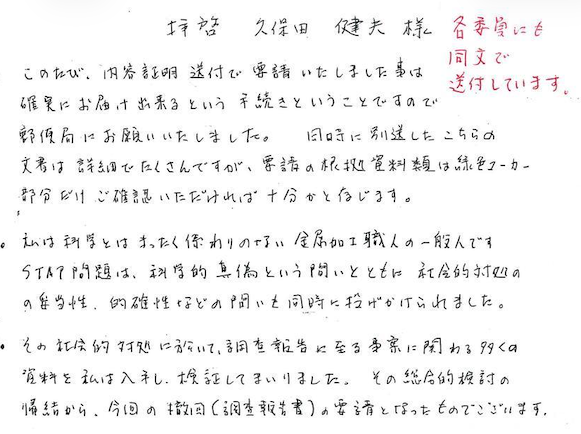 拝啓 久保田 健夫 様
各委員にも
同文で
送付しています。
このたび、内容証明 送付で 要請 いたしました事は
確実にお届け出来るという 手続きということですので
郵便局にお願いいたしました。 同時に別送したこちらの
文書は詳細でたくさんですが、要請の根拠資料類は緑色マーカー
部分だけ ご確認いただければ 十分かと存じます。
・私は科学とは まったく係わりのない 金属加工職人の一般人です
STAP問題は、科学的 真偽という問いとともに 社会的対処の
の妥当性、的確性などの問いも同時に投げかけられました。
・その社会的対処に於いて、調査報告に至る事案に関わる多くの
資料を私は入手し、検証してまいりました。 その総合的検討の
帰結から、今回の撤回(調査報告書)の要請となったものでございます。